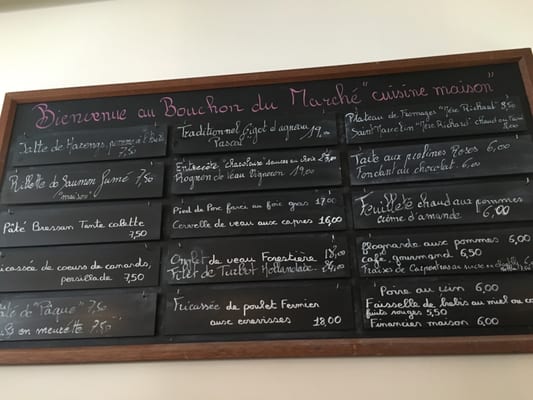 Bienvenue au Bouchon du Marché "cuisine maison"
Jatte de Harengs, pomme à l'huile
7,50
Rillette de Saumon fumé 7,50
"maison"
Pâté Bressan Tante colette
7,50
icassée de coeurs de canards,
persillade 7,50
"Pâque" 7,50
en meurette 7,50
Traditionnel Gigot d'agneau 19,00
Pascal
Entrecôte
Rognon de veau Vigneron 19,00
Pied de Porc farci au foie gras 17,00
Cervelle de veau aux capres 16,00
de veau Forestière 18,00
Filet de Turbot Hollandaise
Fricassée de poulet Fermier
aux écrevisses 18,00
Plateau de Fromages "Mère Richard" 8,50
Saint Marcelin "Mère Richard" chaud
Tarte aux pralines Roses 6,00
Fondant au chocolat 6,00
Feuilleté chaud aux pommes
crème d'amande 6,00
Flognarde aux pommes 6,00
café gourmand 6,50
Fraises de Carpentras au sucre
Poire au vin 6,00
Faisselle de brebis au miel ou co
fruits rouges 5,50
Financiers maison 6,00